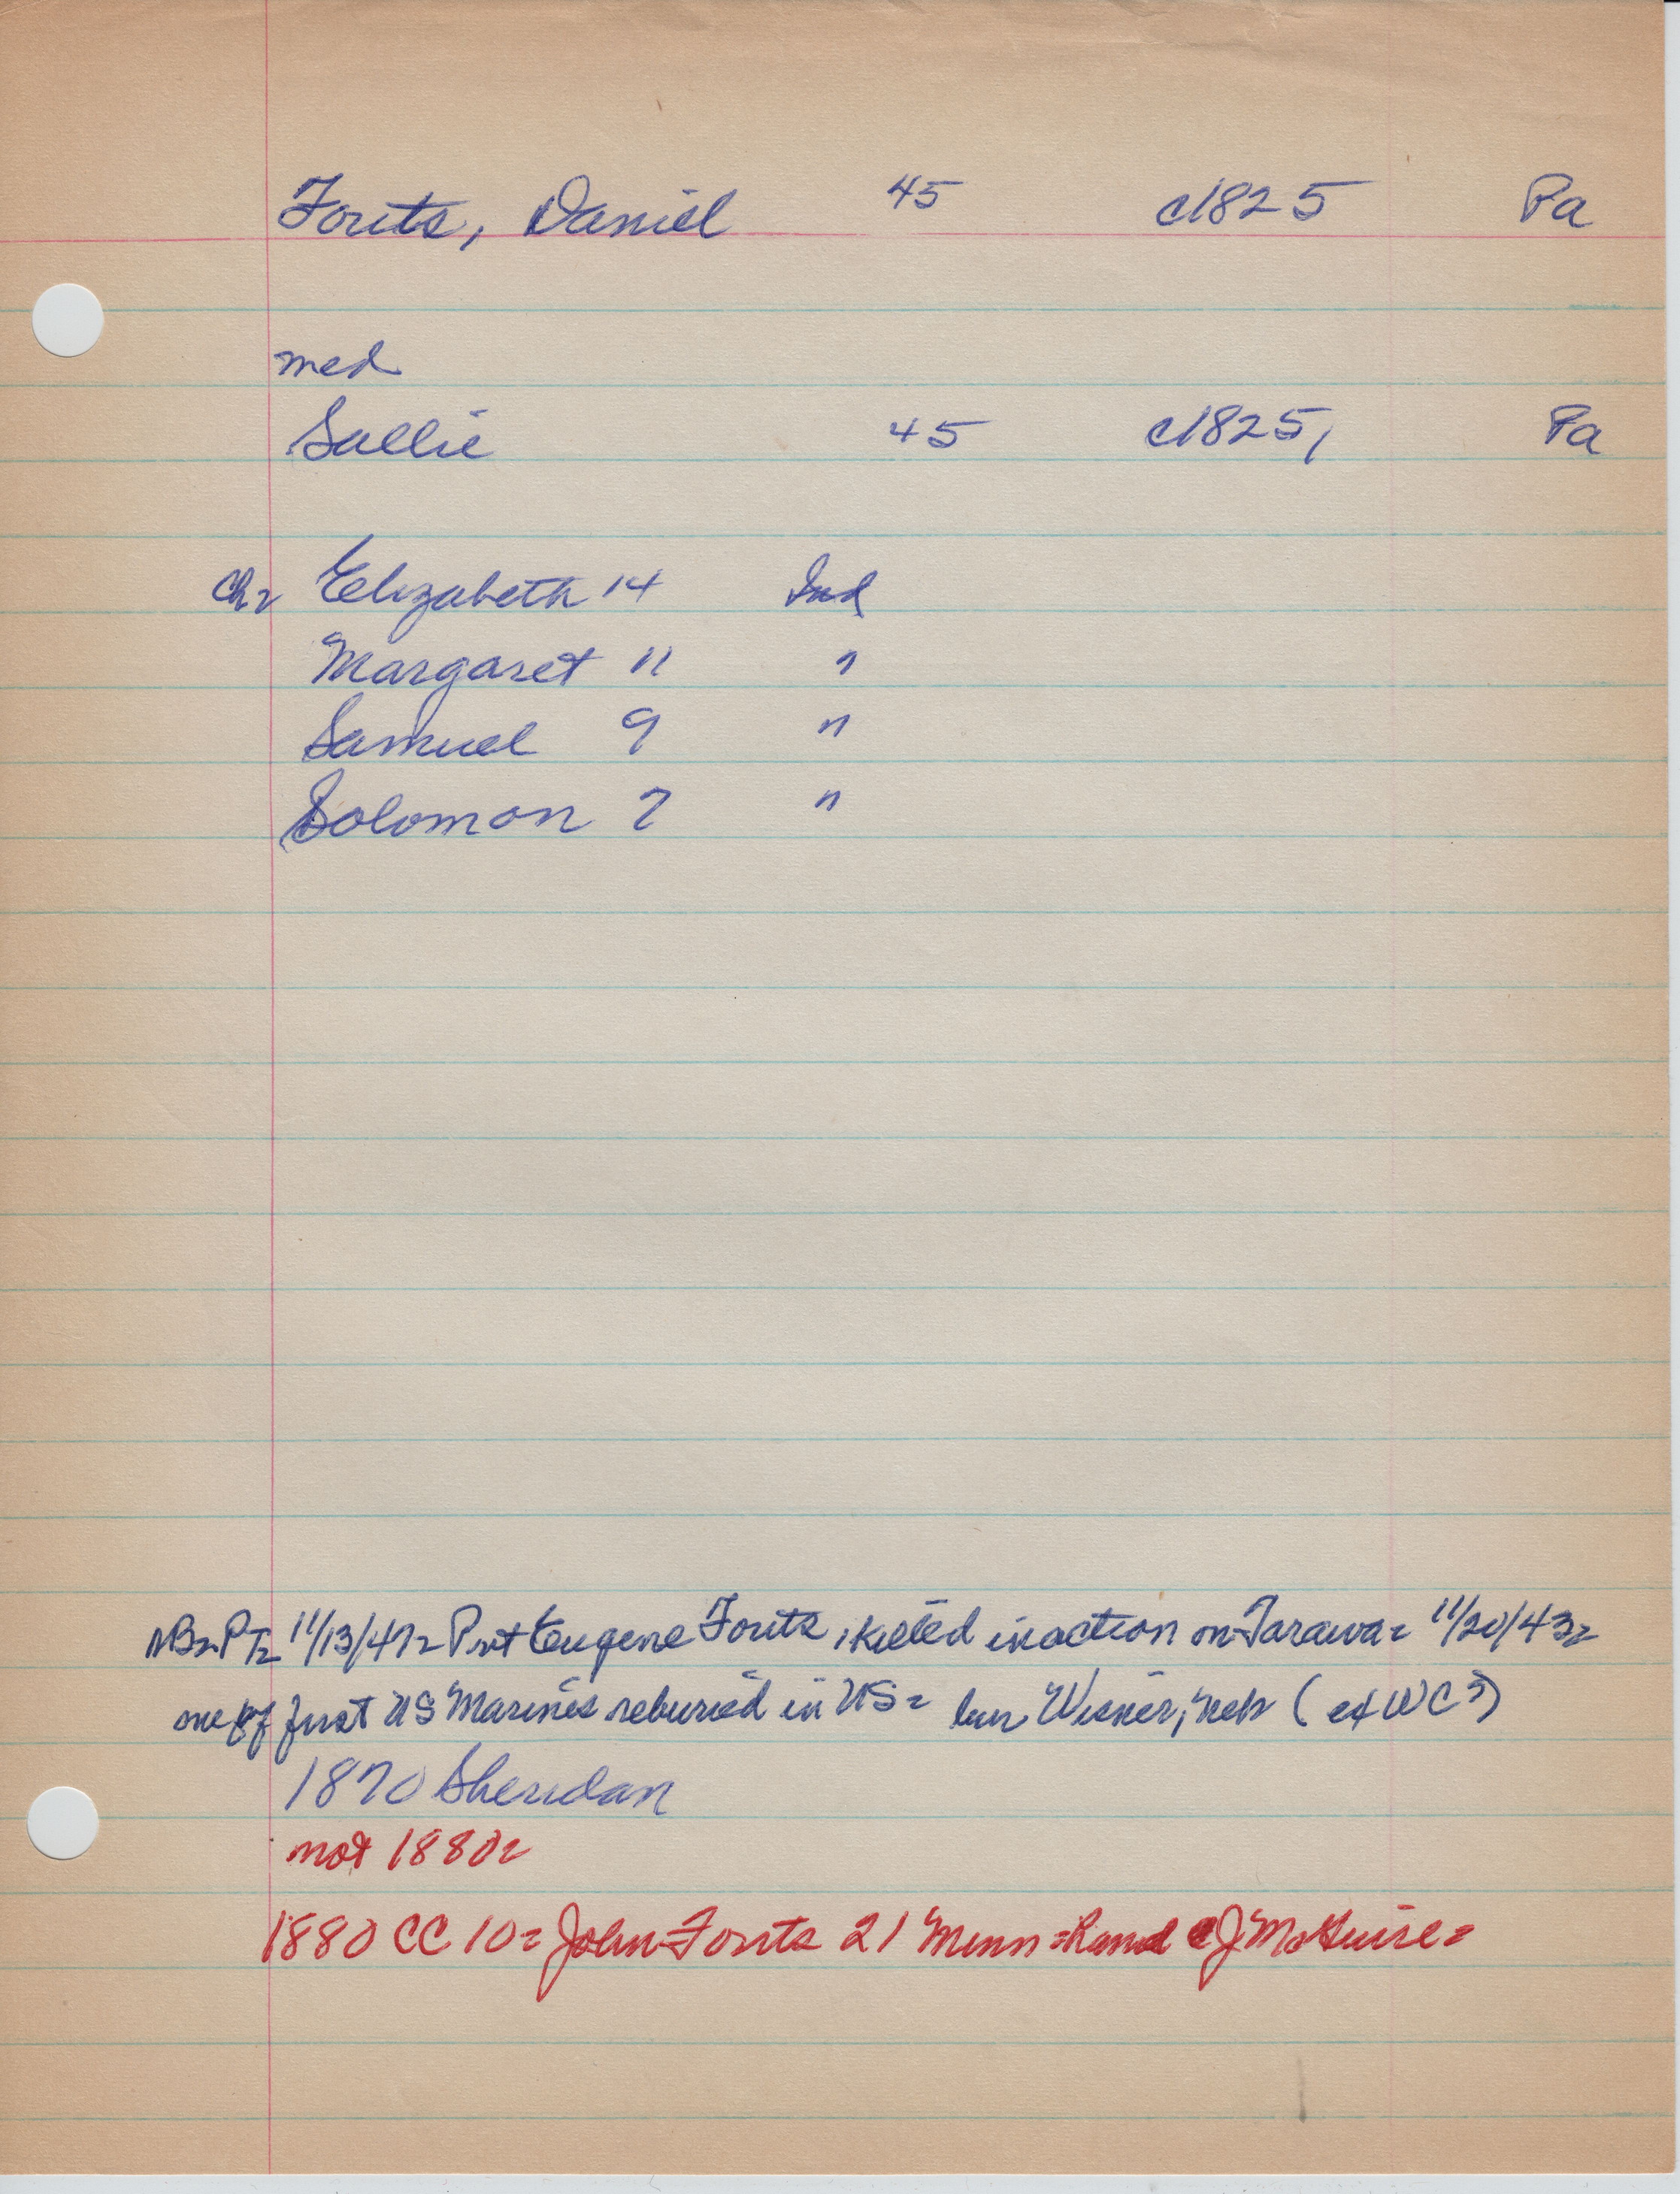 Fouts, Daniel 45 c1825 Pa
med
Sallie 45 c1825, Pa
Ch= Elizabeth 14 Ind
Margaret 11 "
Samuel 9 "
Solomon 7 "
11/13/47= Pvt Eugene Fouts, killed in action on Tarawa= 11/20/43=
one of first US Marines reburied in US= bur Wisner, Neb (ex WC?)
1870 Sheridan
not 1880=
1880 CC 10= John Fouts 21 Minn = C J McGuire=